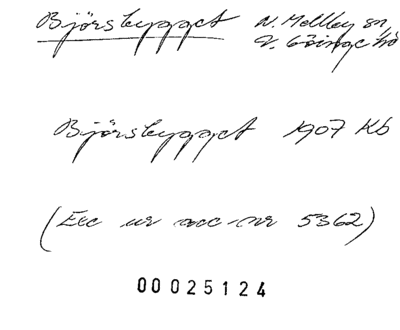 Björsbygget N. Mellby sn,
V. Göinge hd
Björsbygget 1907 Kb
(Exc ur acc nr 5362)
00025124